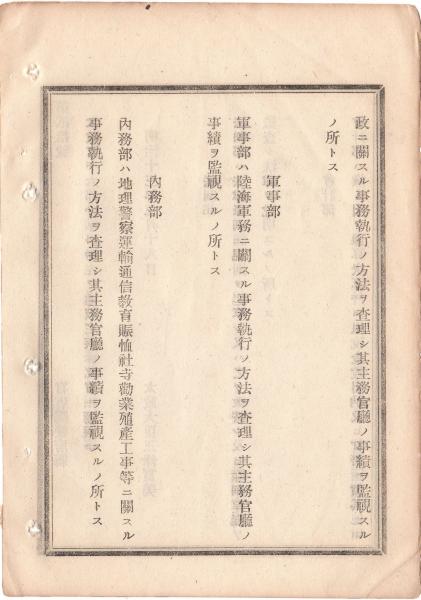 政ニ關スル事務執行ノ方法ヲ査理シ其主務官廳ノ事績ヲ監視スル
ノ所トス
軍事部
軍事部ハ陸海軍務ニ關スル事務執行ノ方法ヲ査理シ其主務官廳ノ
事績ヲ監視スルノ所トス
內務部
內務部ハ地理警察運輸通信敎育賑恤社寺勸業殖產工事等ニ關スル
事務執行ノ方法ヲ査理シ其主務官廳ノ事績ヲ監視スルノ所トス